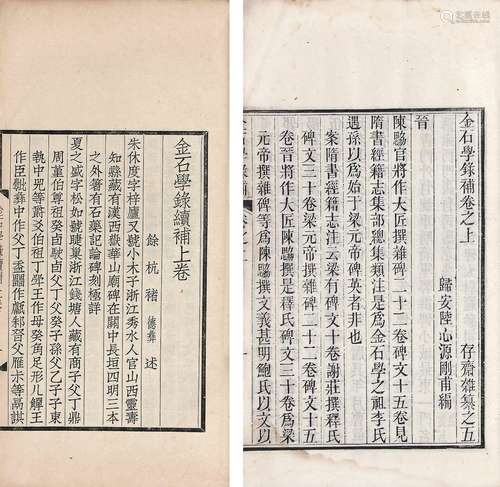 金石學錄續補上卷
餘杭褚德彝述
朱休度字梓廬又號小木子浙江秀水人官山西靈壽
知縣藏有漢西嶽華山廟碑在關中長垣四明三本
之外著有石藥記論碑刻極詳
夏之盛字松如號巢浙江錢塘人藏有商子父丁鼎
周堇伯尊祖癸卣卣父丁父癸子孫父乙子子東
執中兕等爵父伯祖丁學王作母癸角足形几觶王
作臣彝中作父丁盉作父雁等鬲
金石學錄補卷之上 存齋雜纂之五
歸安陸心源剛甫編
晉
陳勰官將作大匠撰雜碑二十二卷碑文十五卷見
隋書經籍志集部總集類注是爲金石學之祖李氏
遇孫以爲始于梁元帝碑英者非也
案隋書經籍志注云梁有碑文十卷謝莊撰釋氏
碑文三十卷梁元帝撰雜碑二十二卷碑文十五
卷晉將作大匠陳勰撰是釋氏碑文三十卷爲梁
元帝撰雜碑等爲陳勰撰文義甚明鮑氏以文以